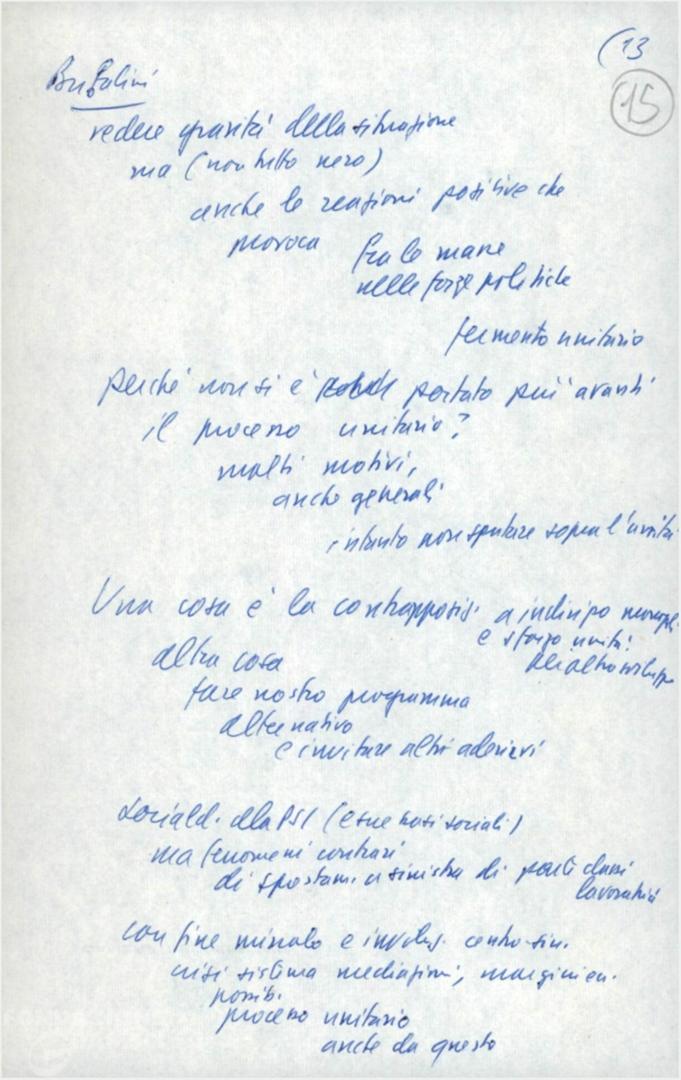 (13
15
Bufalini
vedere gravità della situazione
ma (non tutto nero)
anche le reazioni positive che
provoca fra le masse
nelle forze politiche
fermento unitario
perché non si è portato più avanti
il processo unitario?
molti motivi,
anche generali
intanto non sputare sopra l'unità
Una cosa è la contrapposiz. a indirizzo
e sforzo unità
altro sviluppo
altra cosa
fare nostro programma
alternativo
e invitare altri aderirvi
Sociald. del PSI (e sue basi sociali)
ma fenomeni contrari
di spostam. a sinistra di parti classi
lavoratrici
con fine miracolo e involuz. centro-sin.
crisi sistema mediazioni,
possib.
processo unitario
anche da questo